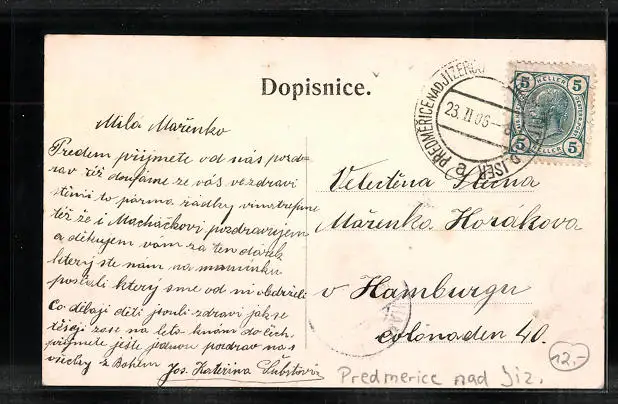 Dopisnice.
PREDMĚŘICE NAD JIZEROU
23. II 06
ISER
5 5
HELLER
5 5
Milá Mařenko
Předem přijmete od nás pozd-
rav též doufáme že vás ve zdraví
to psaní řádky
též že i Macháčkovi pozdravujem
a děkujem vám za ten dárek
který ste nám na maminku
poslali který sme od ní obdrželi
Co dělají děti jsouli zdraví jak se
těšejí zase na léto k nám do Čech
přijmete ještě jednou pozdrav na s
všecky z Bohem
Jos. Kateřina
Velectěna Slečna
Mařenka Horákova
v Hamburgu
colonaden 40.
Predmerice nad Jiz.
12,-